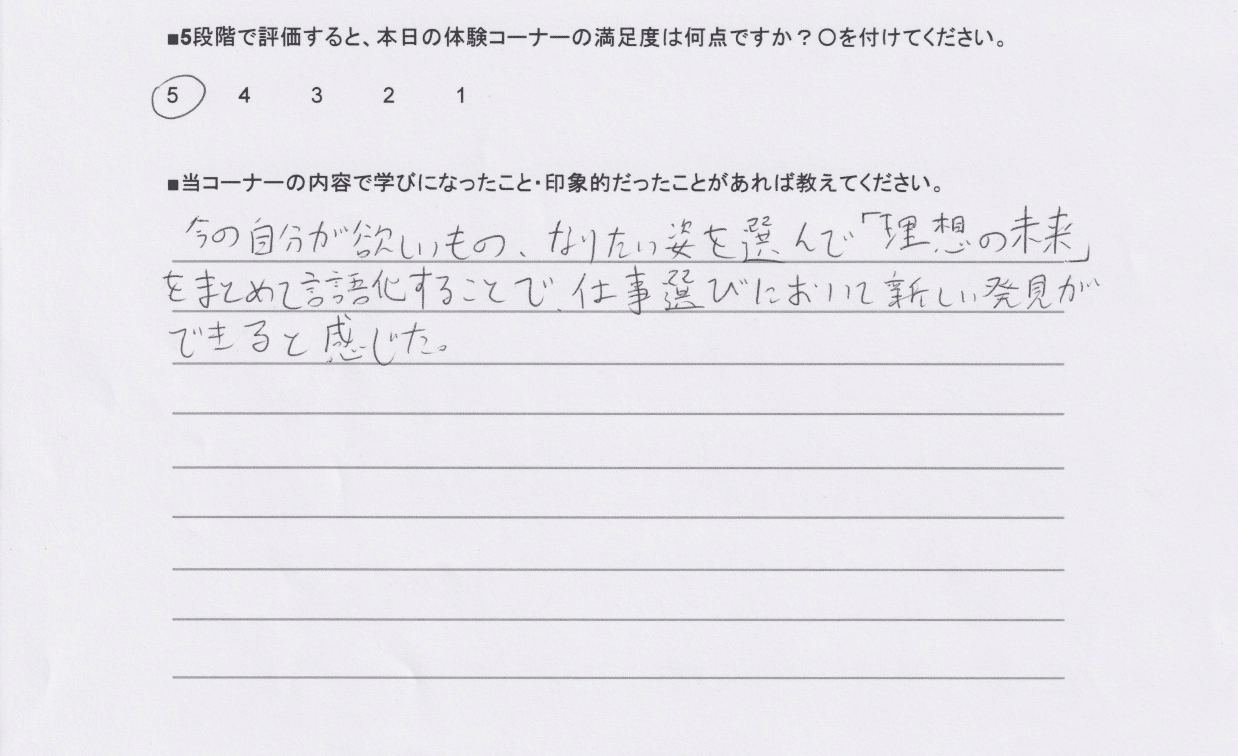 ■5段階で評価すると、本日の体験コーナーの満足度は何点ですか？〇を付けてください。
5 4 3 2 1
■当コーナーの内容で学びになったこと・印象的だったことがあれば教えてください。
今の自分が欲しいもの、なりたい姿を選んで「理想の未来」
をまとめて言語化することで、仕事選びにおいて新しい発見が
できると感じた。